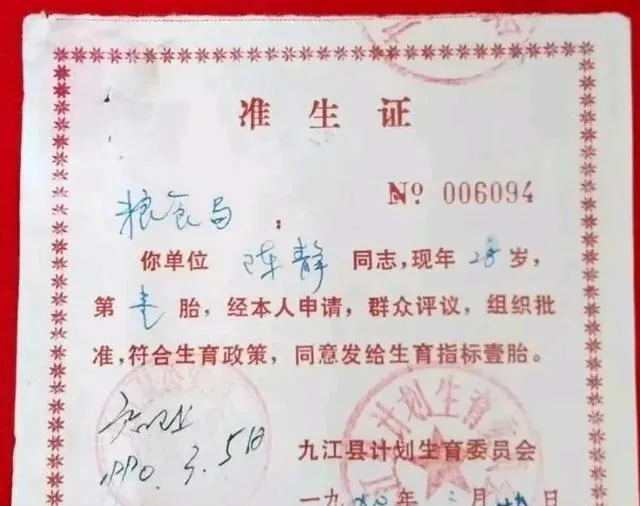 准生证
№ 006094
粮食局：
你单位 陈静 同志，现年 28 岁，
第 壹 胎，经本人申请，群众评议，组织批
准，符合生育政策，同意发给生育指标壹胎。
计划生育
1990.3.5日
九江县计划生育委员会
一九 年 月 日